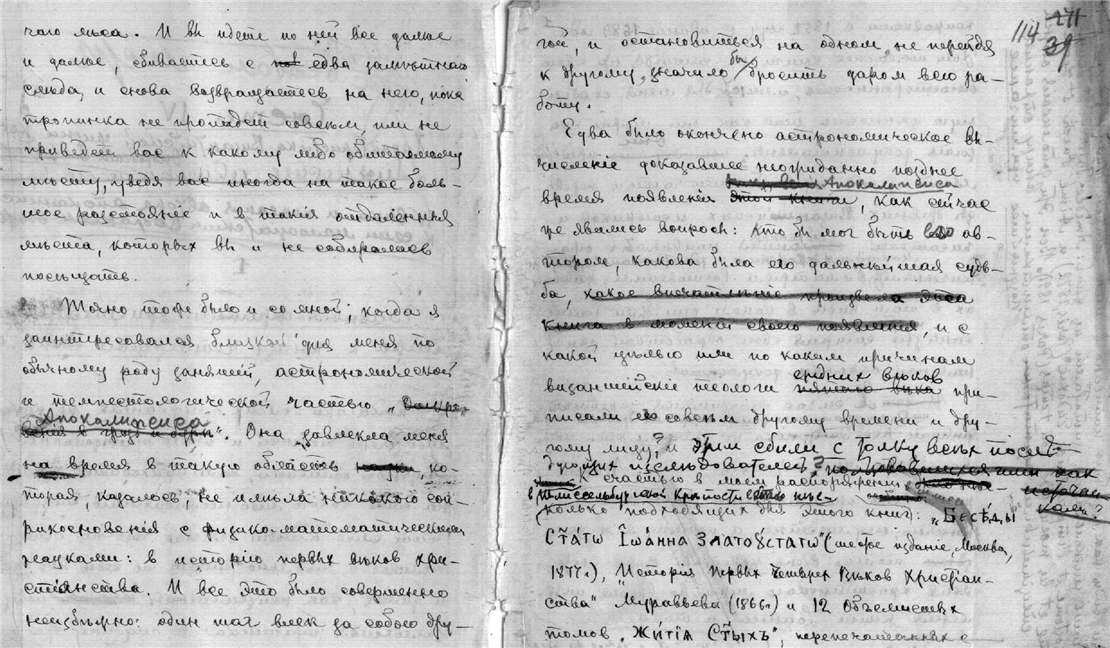 чаго лѣса. И вы идете по ней все далѣе
и далѣе, сбиваетесь с едва замѣтнаго
слѣда, и снова возвращаетесь на него, пока
тропинка не пропадет совсѣм, или не
приведет вас к какому либо обитаемому
мѣсту, уведя вас иногда на такое боль-
шое разстояніе и в такія отдаленныя
мѣста, которых вы и не собирались
посѣщать.
Точно тоже было и со мной, когда я
заинтересовался близкой для меня по
обычному роду занятій, астрономической
и темпестологической частью „
Апокалипсиса
“. Она завлекла меня
на время в такую область, ко-
торая, казалось, не имѣла никакого соп-
рикосновенія с физикоматематическими
науками: в исторію первых вѣков хри-
стіянства. И все это было совершенно
неизбѣжно: один шаг влек за собою дру-
114
271
39
гое, и остановиться на одном, не перейдя
к другому, значило бы бросить даром всю ра-
боту.
Едва было окончено астрономическое вы-
численіе доказавшее неожиданно позднее
Апокалипсиса
время появленія этой книги, как сейчас
же явились вопросы: Кто бы мог быть его ав-
тором, какова была его дальнѣйшая судь-
ба, какое впечатлѣніе произвела эта
книга в момент своего появленія, и с
какой цѣлью или по каким причинам
средних вѣков
византійскіе теологи пятаго вѣка при-
писали его совсѣм другому времени и дру-
гому лицу, и этим сбили с толку всѣх послѣ-
дующих изслѣдователей,
К счастью в моем распоряжении
в Шлиссельбургской крѣпости
(колько подходящих для этого книг: „Бесѣды
Ст҃аго Іѡанна Златоустаго“ (шестое издание, Москва,
1877г.), „Исторія Первых Четырех Вѣков Христіан-
ства“ Муравьева (1866г) и 12 объемистых
томов „Житія Ст҃ыхъ“, перепечатанных с